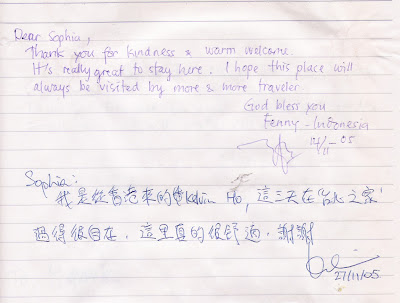 Dear Sophia,
Thank you for kindness & warm welcome.
It's really great to stay here. I hope this place will
always be visited by more & more traveler
God bless you
Fenny - Indonesia
17/11 -05
Sophia:
我是從香港來的Kelvin Ho, 這三天在之家
過得很自在, 這里真的很舒適, 謝謝
27/11/05